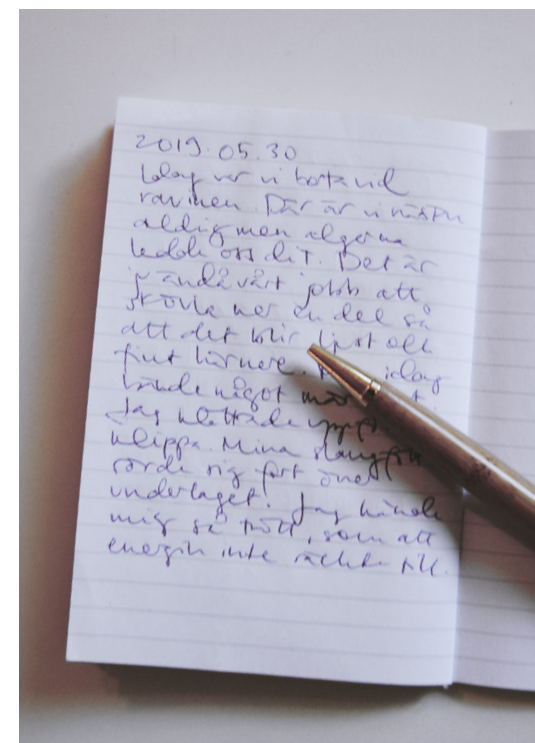 2019.05.30
Idag var vi borta vid
ravinen. Där är vi nästan
aldrig men algerna
ledde oss dit. Det är
ju ändå vårt jobb att
skövla ner en del så
att det blir ljust och
fint härnere. idag
hände något
Jag klättrade
klippa. Mina
rörde sig fort över
underlaget. Jag kände
mig så trött, som att
energin inte räckte till.